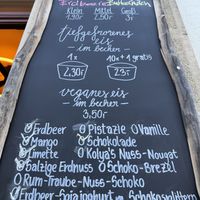 Erdbeere
Klein Mittel Groß
1,30 2,50 3,-
tiefgefrorenes
eis
- im becher -
1x 10x + 1 gratis
2,30 23,-
veganes eis
- im becher -
3,50
Erdbeer Pistazie Vanille
Mango Schokolade
Limette Kolya's Nuss-Nougat
Salzige Erdnuss Schoko-Brezel
Rum-Traube-Nuss-Schoko
Erdbeer-Sojajoghurt Schokosplittern